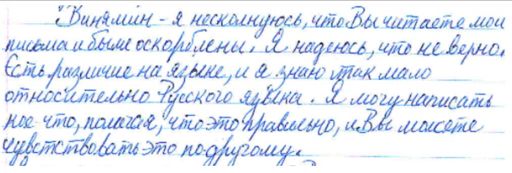 "Винямин - я несколнуюсь, что Вы читаете мои
письма и были оскорблены. Я надеюсь, что не верно.
Есть различие на языке, и я знаю так мало
относительно Русского языка. Я могу написать
кое что, полагая, что это правильно, и Вы можете
чувстствовать это по-другому.